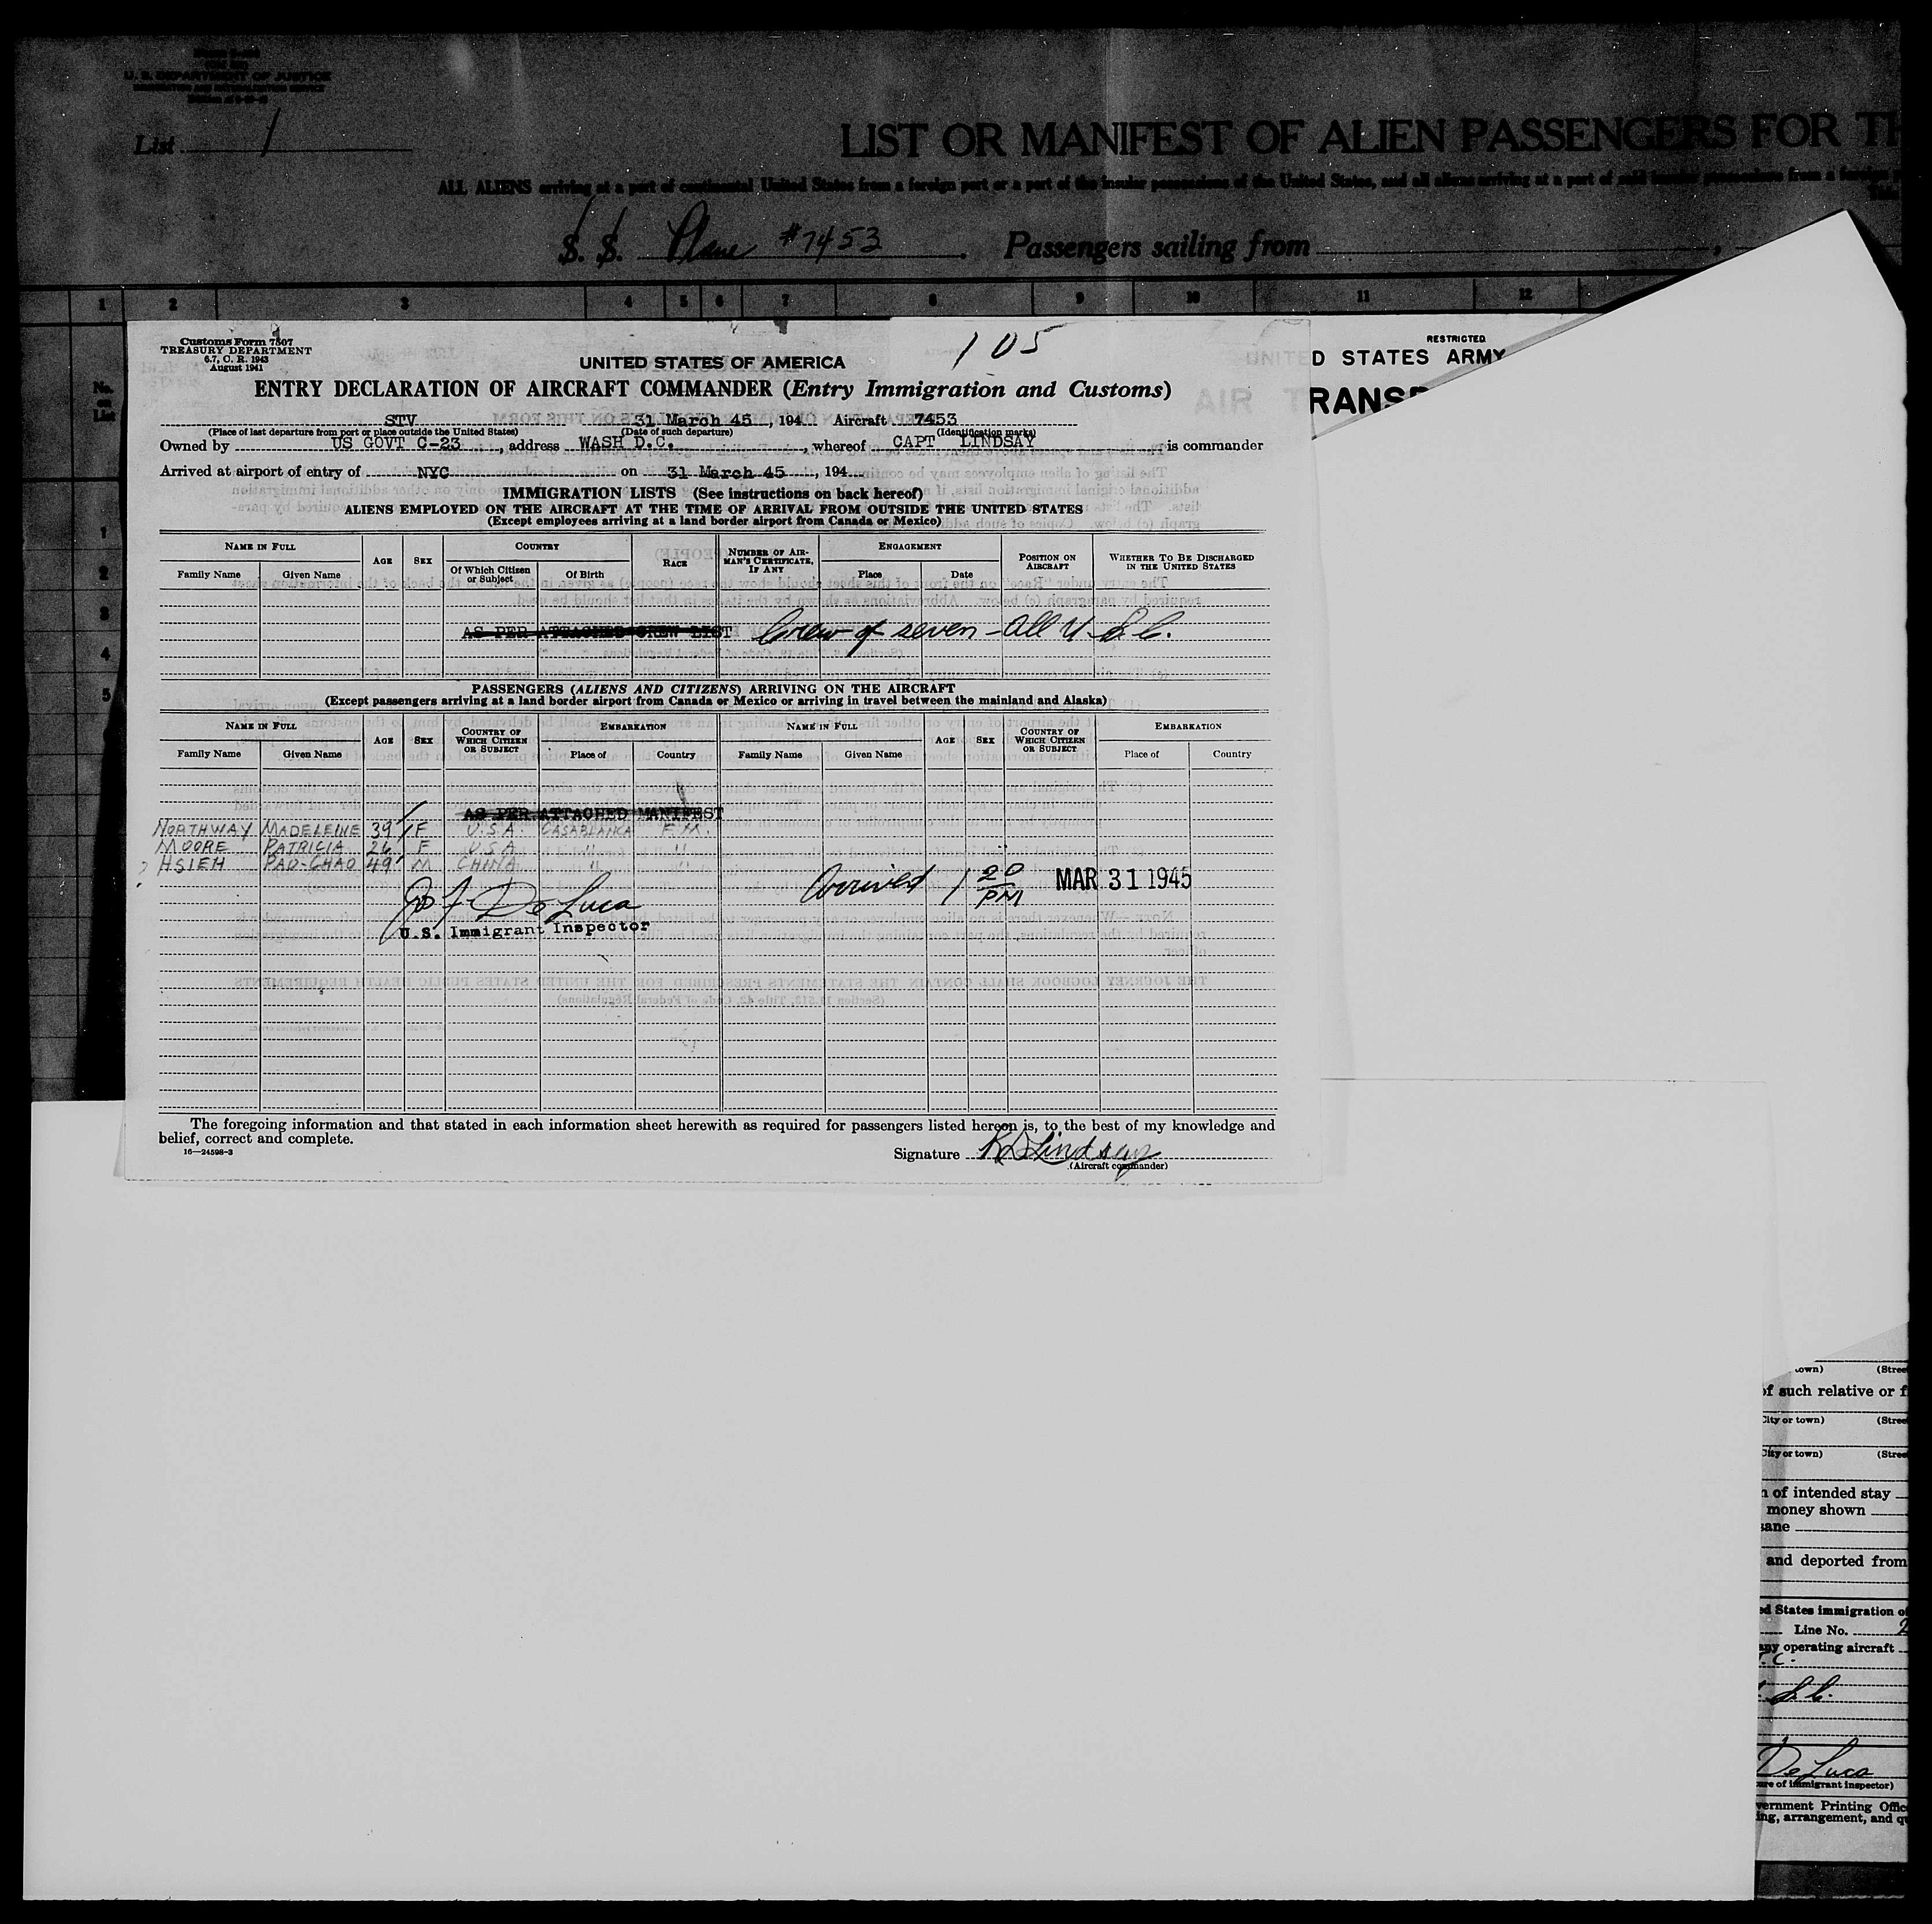 U. S. DEPARTMENT OF JUSTICE
List 1
LIST OR MANIFEST OF ALIEN PASSENGERS FOR TH
ALL ALIENS arriving at a port of continental United States from a foreign port or a port of the insular possessions of the United States, and all aliens arriving at a port of said insular possessions from a foreign
S. S. Plane #7453. Passengers sailing from
1 2 3 4 5 6 7 8 9 10 11 12
No. on List
1
2
3
4
5
Customs Form 7507
TREASURY DEPARTMENT
6.7, C. R. 1943
August 1941
105
UNITED STATES OF AMERICA
ENTRY DECLARATION OF AIRCRAFT COMMANDER (Entry Immigration and Customs)
STV 31 March 45, 194 Aircraft 7453
(Place of last departure from port or place outside the United States) (Date of such departure) (Identification marks)
Owned by US GOVT C-23, address WASH D.C., whereof CAPT LINDSAY is commander
Arrived at airport of entry of NYC on 31 March 45, 194
IMMIGRATION LISTS (See instructions on back hereof)
ALIENS EMPLOYED ON THE AIRCRAFT AT THE TIME OF ARRIVAL FROM OUTSIDE THE UNITED STATES
(Except employees arriving at a land border airport from Canada or Mexico)
NAME IN FULL AGE SEX COUNTRY RACE NUMBER OF AIRMAN'S CERTIFICATE, IF ANY ENGAGEMENT POSITION ON AIRCRAFT WHETHER TO BE DISCHARGED IN THE UNITED STATES
Family Name Given Name Of Which Citizen or Subject Of Birth Place Date
AS PER ATTACHED CREW LIST Crew of seven - All U.S.C.
PASSENGERS (ALIENS AND CITIZENS) ARRIVING ON THE AIRCRAFT
(Except passengers arriving at a land border airport from Canada or Mexico or arriving in travel between the mainland and Alaska)
NAME IN FULL AGE SEX COUNTRY OF WHICH CITIZEN OR SUBJECT EMBARKATION NAME IN FULL AGE SEX COUNTRY OF WHICH CITIZEN OR SUBJECT EMBARKATION
Family Name Given Name Place of Country Family Name Given Name Place of Country
AS PER ATTACHED MANIFEST
NORTHWAY MADELEINE 39 F U.S.A. CASABLANCA F.M.
MOORE PATRICIA 26 F U.S.A " "
? HSIEH PAO-CHAO 49 M CHINA " "
Arrived 1 20 PM MAR 31 1945
Jos F. De Luca
U.S. Immigrant Inspector
The foregoing information and that stated in each information sheet herewith as required for passengers listed hereon is, to the best of my knowledge and
belief, correct and complete.
16—24598-3
Signature R D Lindsay
(Aircraft commander)
RESTRICTED
UNITED STATES ARMY
AIR TRANSP
own) (Stree
of such relative or f
City or town) (Stree
City or town) (Stree
n of intended stay
money shown
sane
and deported from
ed States immigration of
Line No. 2
any operating aircraft
.C.
S.C.
De Luca
ure of immigrant inspector)
vernment Printing Offic
ing, arrangement, and qu